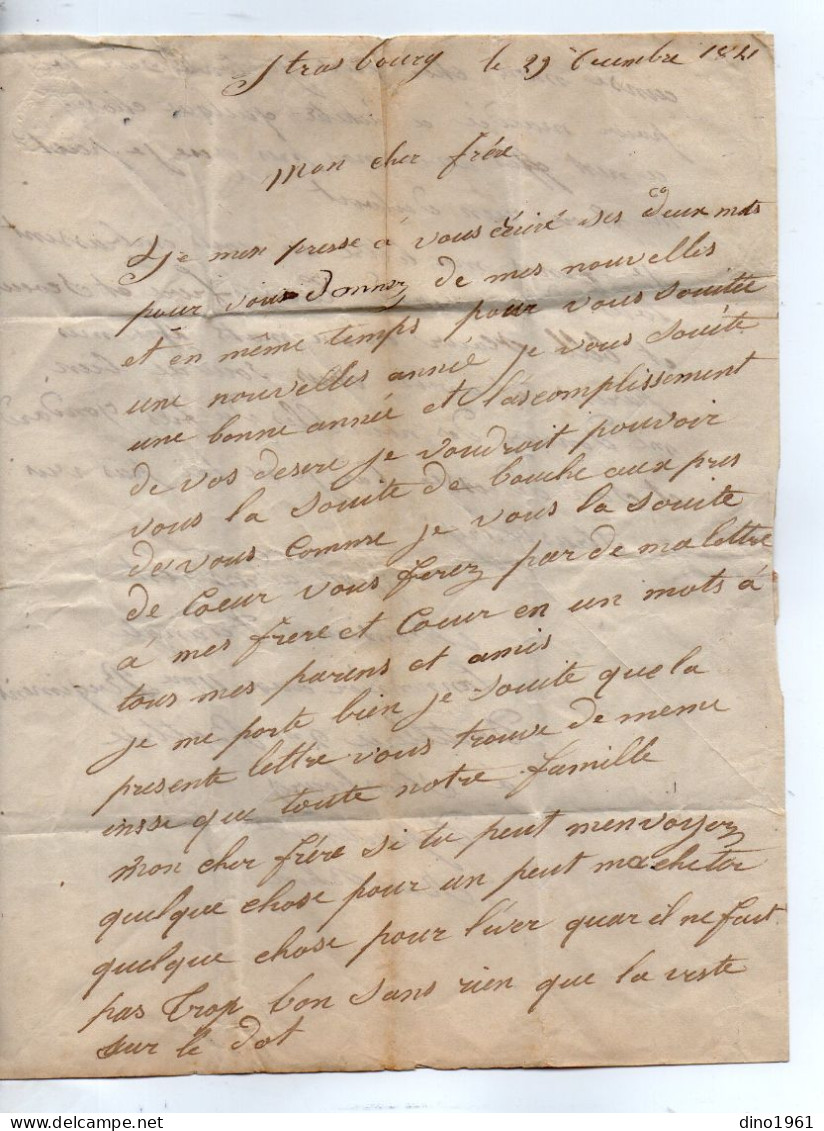 Strasbourg le 29 Decembre 1821
Mon cher frère
Je men presse á vous écriré Ses deux mots
pour vous donnez de mes nouvelles
et en même temps pour vous souitée
une nouvelles année je vous souéte
une bonne année et l'ascomplissement
de vos desire je voudroit pouvoir
vous la souite de bouche aux pres
de vous Comme je vous la souite
de Coeur vous ferez par de ma lettre
á mes frere et Coeur en un mots á
tous mes parens et amis
je me porte bien je souite que la
presente lettre vous trouve de meme
insse que toute notre famille
mon cher frére si tu peut menvoyez
quelque chose pour un peut machetér
quelque chose pour l'iver quar il ne fait
pas trop bon sans rien que la veste
sur le dot
dino1961